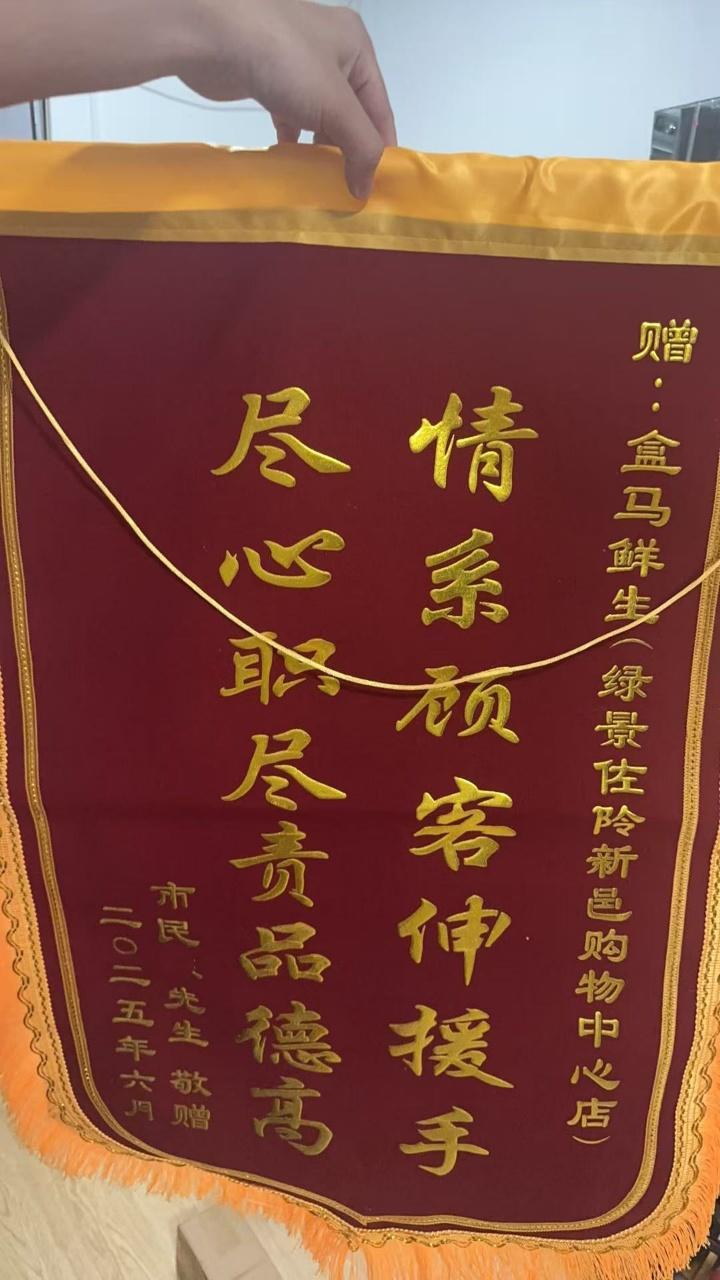 赠：盒马鲜生（绿景佐阾新邑购物中心店）
情系顾客伸援手
尽心职尽责品德高
市民 先生 敬赠
二〇二五年六月